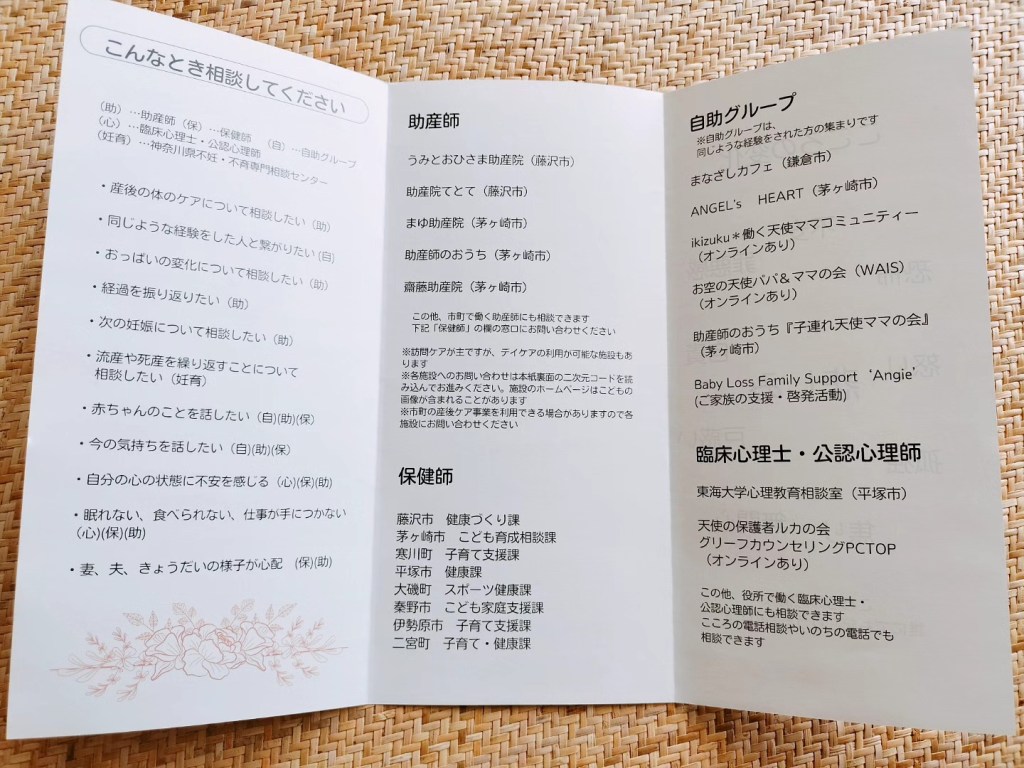 こんなとき相談してください
（助）…助産師（保）…保健師　（自）…自助グループ
（心）…臨床心理士・公認心理師
（妊育）…神奈川県不妊・不育専門相談センター
・産後の体のケアについて相談したい（助）
・同じような経験をした人と繋がりたい(自)
・おっぱいの変化について相談したい（助）
・経過を振り返りたい（助）
・次の妊娠について相談したい（助）
・流産や死産を繰り返すことについて
相談したい（妊育）
・赤ちゃんのことを話したい（自)(助)(保）
・今の気持ちを話したい（自)(助)(保）
・自分の心の状態に不安を感じる（心)(保)(助)
・眠れない、食べられない、仕事が手につかない
（心)(保)(助)
・妻、夫、きょうだいの様子が心配　(保)(助)
助産師
うみとおひさま助産院（藤沢市）
助産院てとて（藤沢市）
まゆ助産院（茅ヶ崎市）
助産師のおうち（茅ヶ崎市）
齋藤助産院（茅ヶ崎市）
この他、市町で働く助産師にも相談できます
下記「保健師」の欄の窓口にお問い合わせください
※訪問ケアが主ですが、デイケアの利用が可能な施設もあ
ります
※各施設へのお問い合わせは本紙裏面の二次元コードを読
み込んでお進みください。施設のホームページはこどもの
画像が含まれることがあります
※市町の産後ケア事業を利用できる場合がありますので各
施設にお問い合わせください
保健師
藤沢市　健康づくり課
茅ヶ崎市　こども育成相談課
寒川町　子育て支援課
平塚市　健康課
大磯町　スポーツ健康課
秦野市　こども家庭支援課
伊勢原市　子育て支援課
二宮町　子育て・健康課
自助グループ
※自助グループは、
同じような経験をされた方の集まりです
まなざしカフェ（鎌倉市）
ANGEL's　HEART（茅ヶ崎市）
ikizuku＊働く天使ママコミュニティー
（オンラインあり）
お空の天使パパ＆ママの会（WAIS）
（オンラインあり）
助産師のおうち『子連れ天使ママの会』
（茅ヶ崎市）
Baby Loss Family Support‘Angie’
(ご家族の支援・啓発活動)
臨床心理士・公認心理師
東海大学心理教育相談室（平塚市）
天使の保護者ルカの会
グリーフカウンセリングPCTOP
（オンラインあり）
この他、役所で働く臨床心理士・
公認心理師にも相談できます
こころの電話相談やいのちの電話でも
相談できます